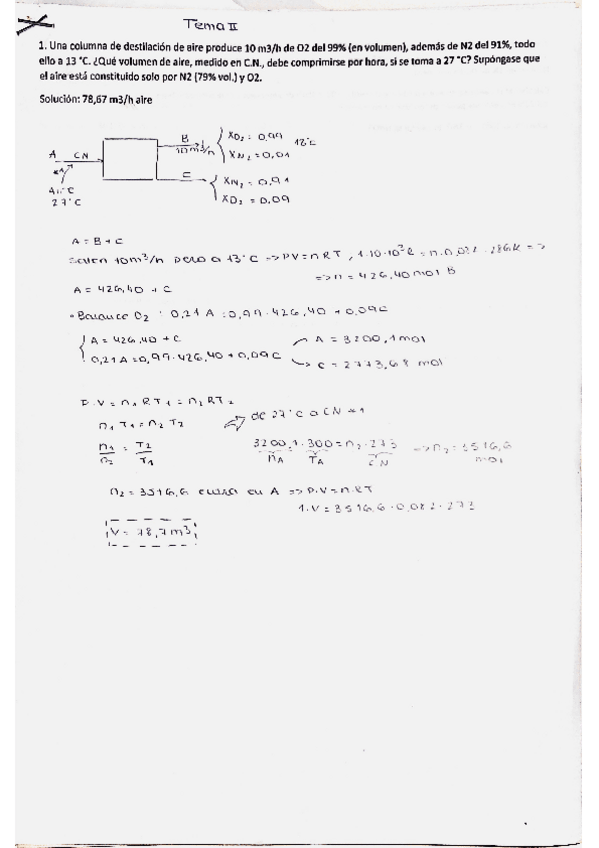 Tema II
1. Una columna de destilación de aire produce 10 m3/h de O2 del 99% (en volumen), además de N2 del 91%, todo
ello a 13 °C. ¿Qué volumen de aire, medido en C.N., debe comprimirse por hora, si se toma a 27 °C? Supóngase que
el aire está constituido solo por N2 (79% vol.) y O2.
Solución: 78,67 m3/h aire
A CN
27°C
B
10 m³/h
XO₂ = 0,99
XN₂ = 0,01
C
XN₂ = 0,91
XO₂ = 0,09
A = B + C
Salen 10m³/h pero a 13°C => PV = nRT, 1·10·10³ℓ = n·0,082·286K =>
=> n = 426,40 mol B
A = 426,40 + C
• Balance O₂ : 0,21A = 0,99·426,40 + 0,09C
A = 426,40 + C
0,21A = 0,99·426,40 + 0,09C
A = 3200,1 mol
C = 2773,68 mol
P·V = n₁RT₁ = n₂RT₂
n₁T₁ = n₂T₂
de 27°C a CN
n₁/n₂ = T₂/T₁
3200,1·300 = n₂·273 => n₂ = 3516,6 mol
nA TA CN
n₂ = 3516,6 en A => P·V = n·RT
1·V = 3516,6·0,082·273
V = 78,7m³